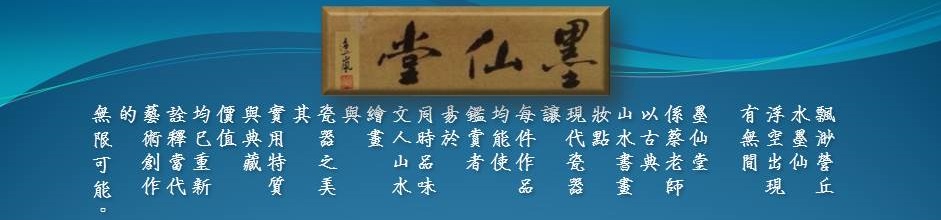 墨仙堂
飄渺營丘
水墨仙
浮空出現
有無間
墨仙堂
係蔡老師
以古典
山水書畫
妝點
現代瓷器
讓
每件作品
均能使
鑑賞者
易於
同時品味
文人山水
繪畫
與
瓷器之美
其
實用特質
與典藏
價值
均已重新
詮釋當代
藝術創作
的
無限可能。